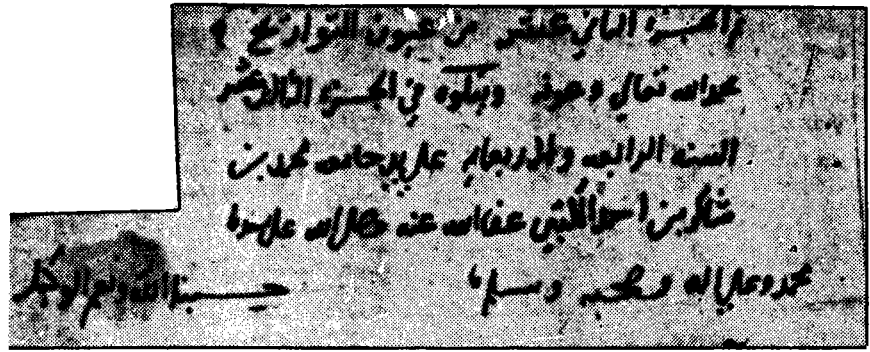 تم الجزء الثاني عشر من عيون التواريخ
بحمد الله تعالى وعونه ويتلوه في الجزء الثالث عشر
السنة الرابعة والاربعماية على يد جامعه محمد بن
شاكر بن احمد الكتبي عفا الله عنه وصلى الله على سيدنا
محمد وعلى اله وصحبه وسلم حسبنا الله ونعم الوكيل